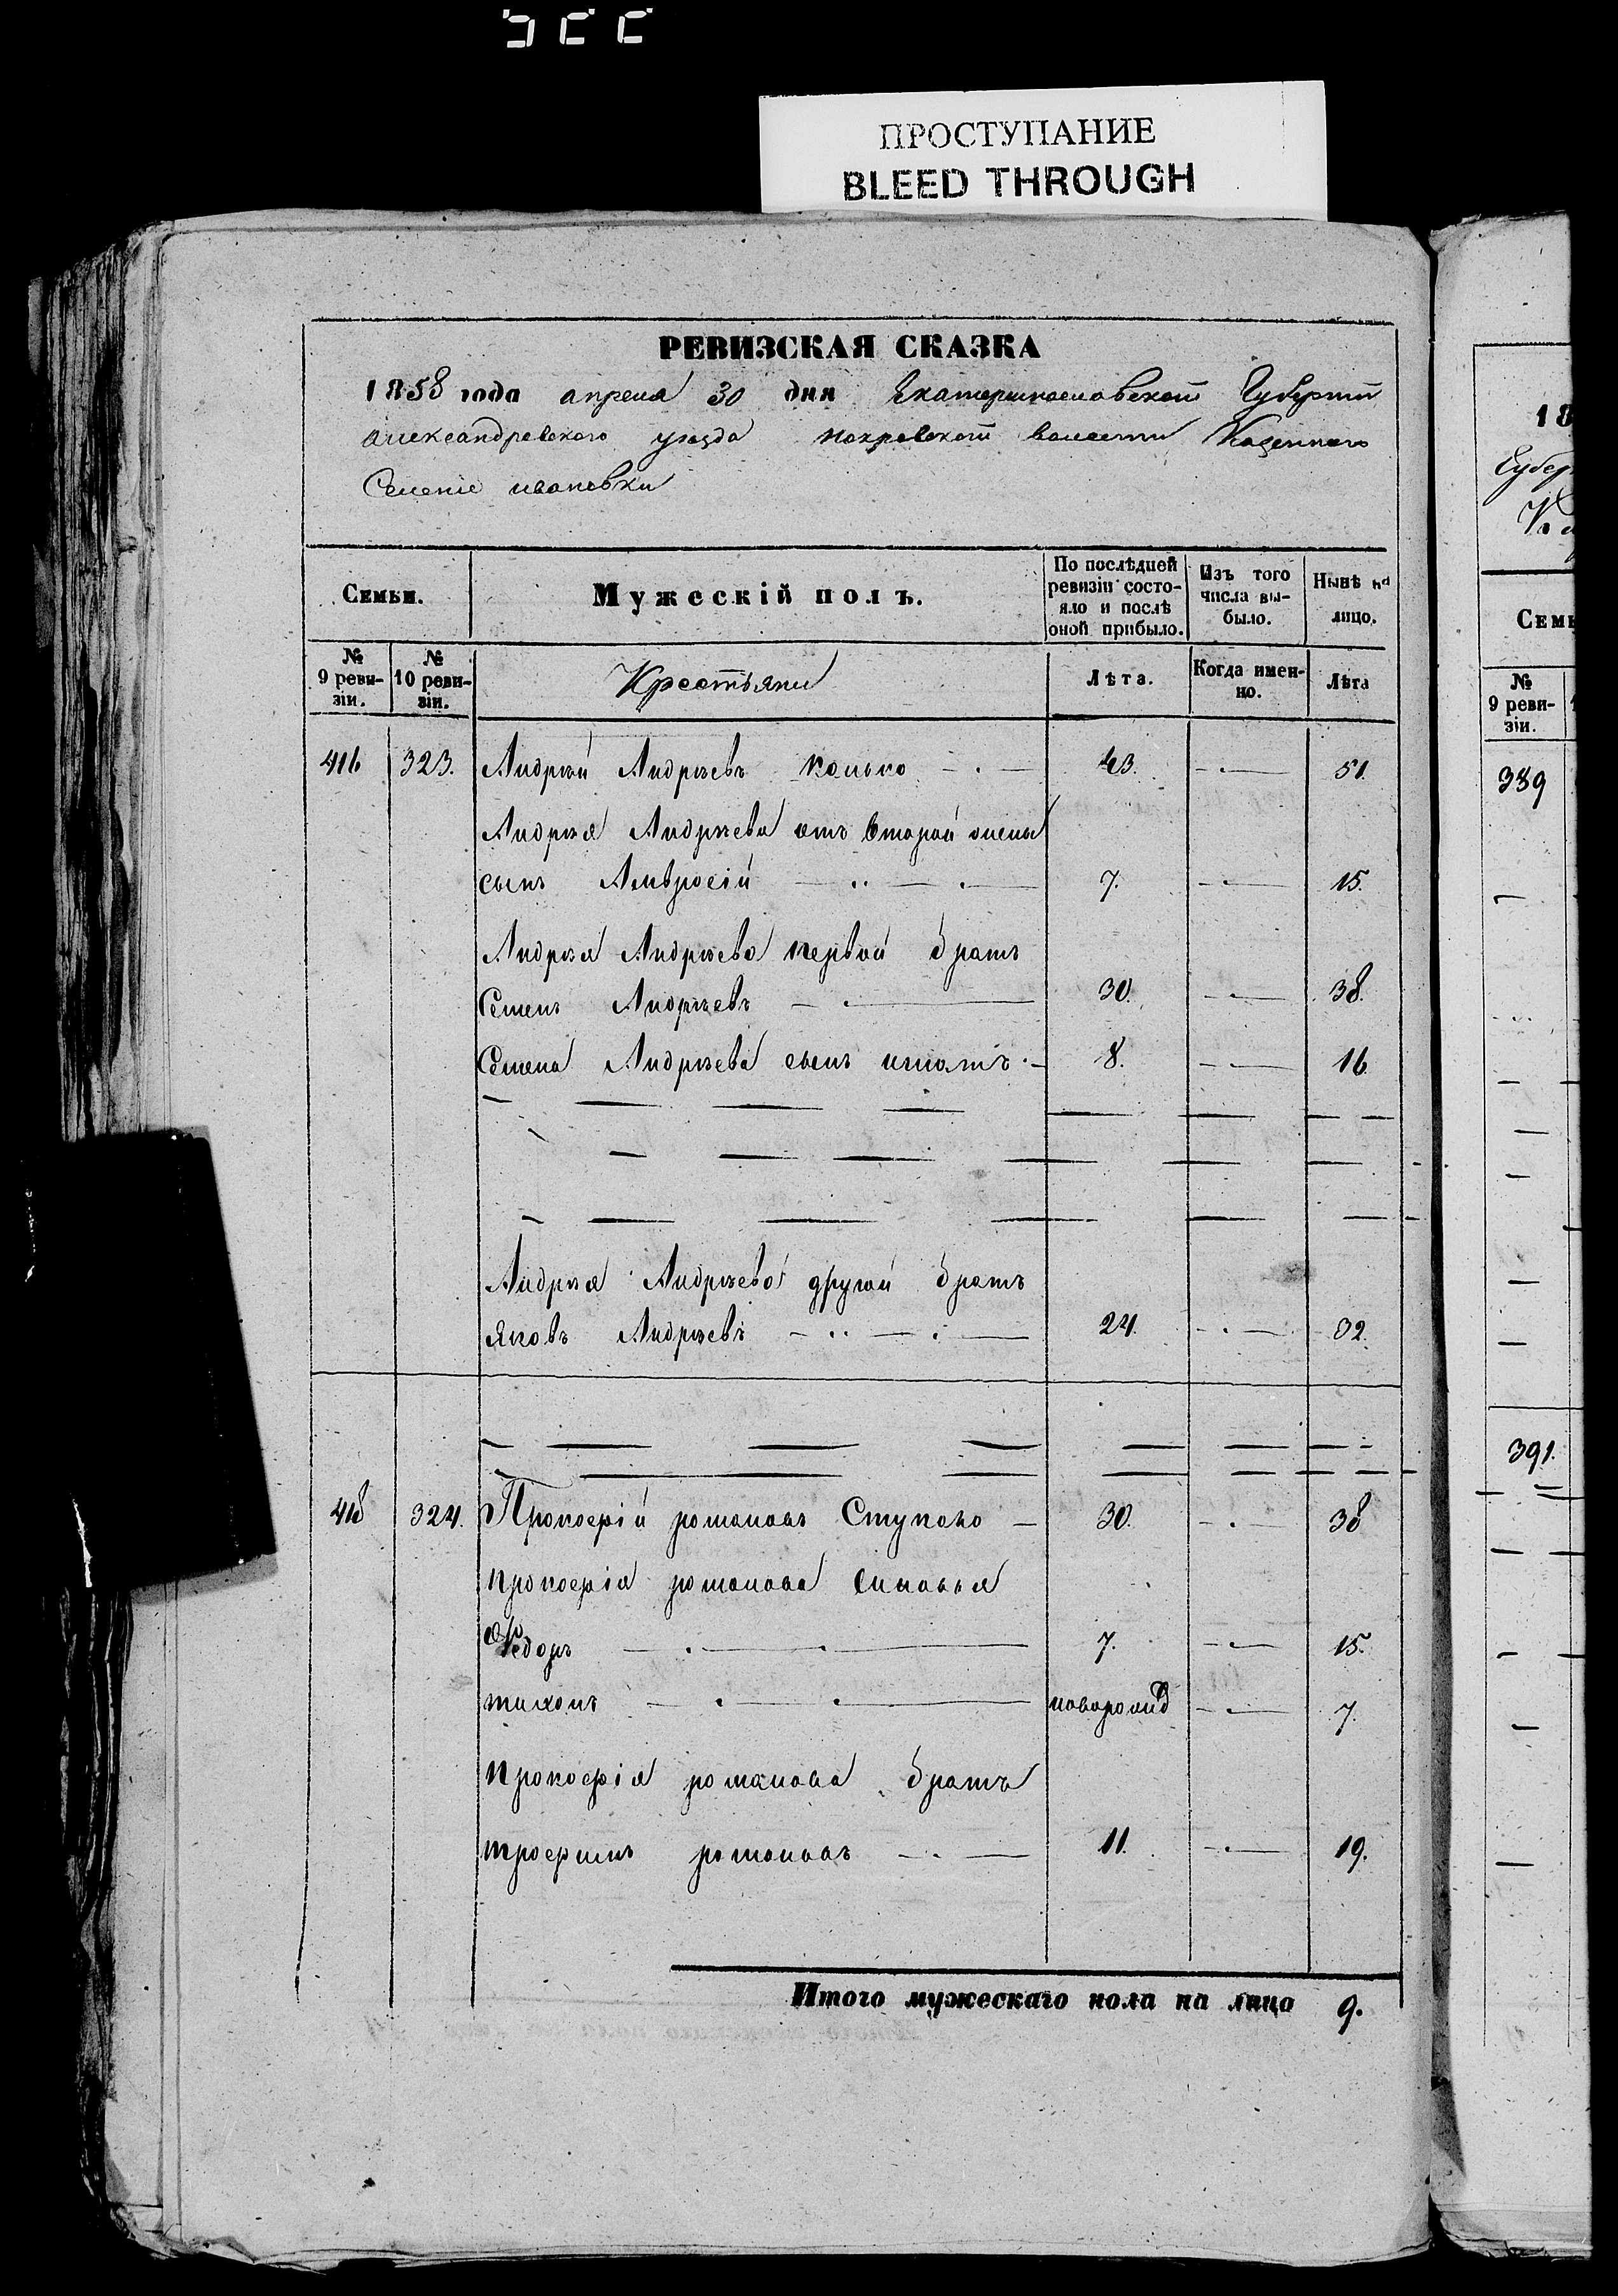 ПРОСТУПАНИЕ
BLEED THROUGH
РЕВИЗСКАЯ СКАЗКА
1858 года апреля 30 дня Екатеринославской Губернии
александревского уезда покровской волости Казенного
Селение ивановки
Семьи.
Мужескій полъ.
По послѣдней ревизіи состояло и послѣ оной прибыло.
Изъ того числа выбыло.
Нынѣ на лицо.
№ 9 ревизіи.
№ 10 ревизіи.
Крестьяни
Лѣта.
Когда именно.
Лѣта
416 323. Андрѣй Андрѣевъ 43. 51.
Андрѣя Андрѣева отъ второй жены
сынъ Амвросій 7. 15.
Андрѣя Андрѣева первой братъ
Семенъ Андрѣевъ 30. 38.
Семена Андрѣева сынъ игнатъ 8. 16
Андрѣя Андрѣева другой братъ
яковъ Андрѣевъ 24. 32.
418 324. Прокофій романовъ Ступако 30. 38
прокофія романова синовья
Федоръ 7. 15.
тихонъ 7.
прокофія романова братъ
трофимъ романовъ 11. 19.
Итого мужескаго пола на лицо 9.
18
Губер
Семь
№ 9 ревизіи.
389
391.